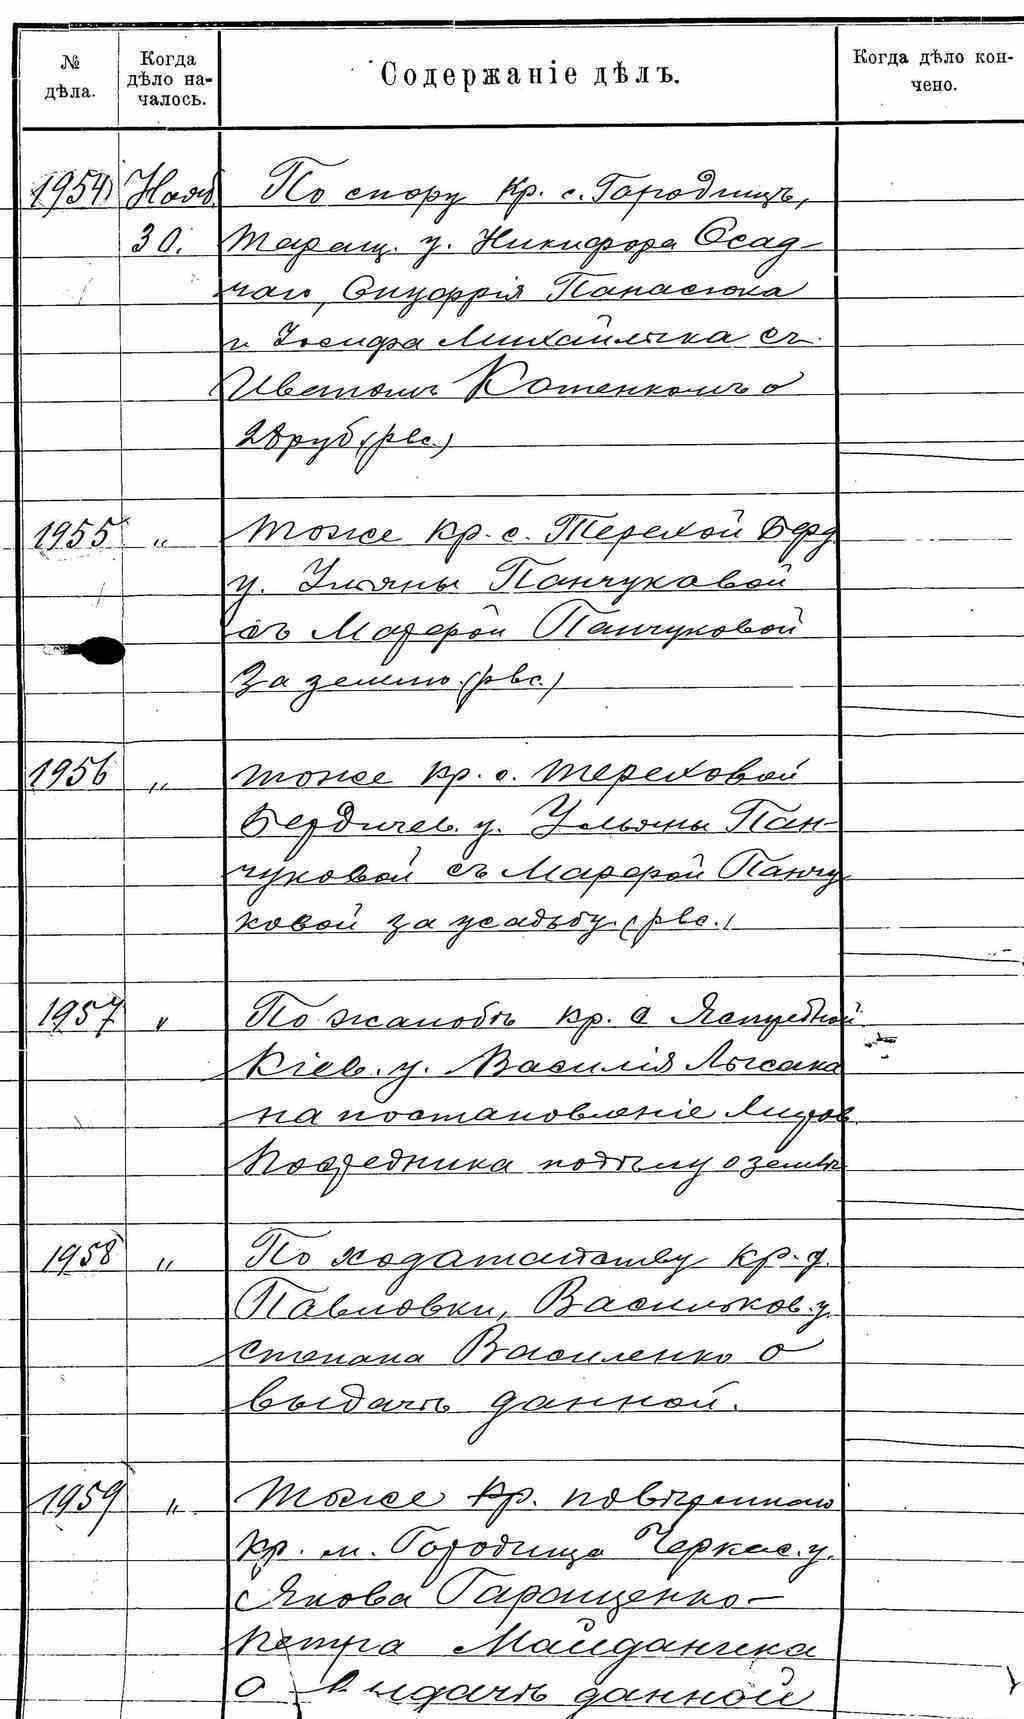 № дѣла. Когда дѣло началось. Содержаніе дѣлъ. Когда дѣло кончено.
1954 Нояб. По спору кр. с. Городищъ,
30. Таращ. у. Никифора Осад-
чаго, Онуфрія Панасюка
и Іосифа Михайлика съ
Иваномъ Котенкомъ о
руб. (рвс.)
1955 " Тоже кр. с. Терехой Берд.
у. Ульяны Панчуковой
съ Марфой Панчуковой
за землю. (рвс.)
1956 " Тоже кр. с. Тереховой
Бердичев. у. Ульяны Пан-
чуковой съ Марфой Панчу
ковой за усадьбу. (рвс.)
1957 " По жалобѣ кр. с. Ястребной
Кіев. у. Василія Лысака
на постановленіе Миров.
Посредника по дѣлу о землѣ
1958 " По ходатайству кр. д.
Павловки, Васильков. у.
Степана Василенко о
выдачѣ данной.
1959 " Тоже кр. повѣреннаго
кр. м. Городища Черкас. у.
Якова Гаращенко-
Петра Майданика
о выдачѣ данной